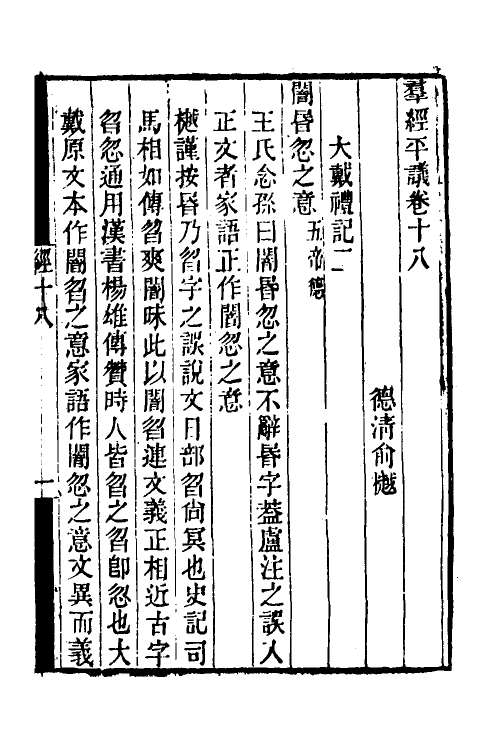 羣經平議卷十八
德清俞樾
大戴禮記二
闇昏忽之意 五帝德
王氏念孫曰闇昏忽之意不辭昏字葢盧注之誤入
正文者家語正作闇忽之意
樾謹按昏乃曶字之誤說文日部曶尙冥也史記司
馬相如傳曶爽闇昧此以闇曶連文義正相近古字
曶忽通用漢書楊雄傳贊時人皆曶之曶卽忽也大
戴原文本作闇曶之意家語作闇忽之意文異而義
經十八
一